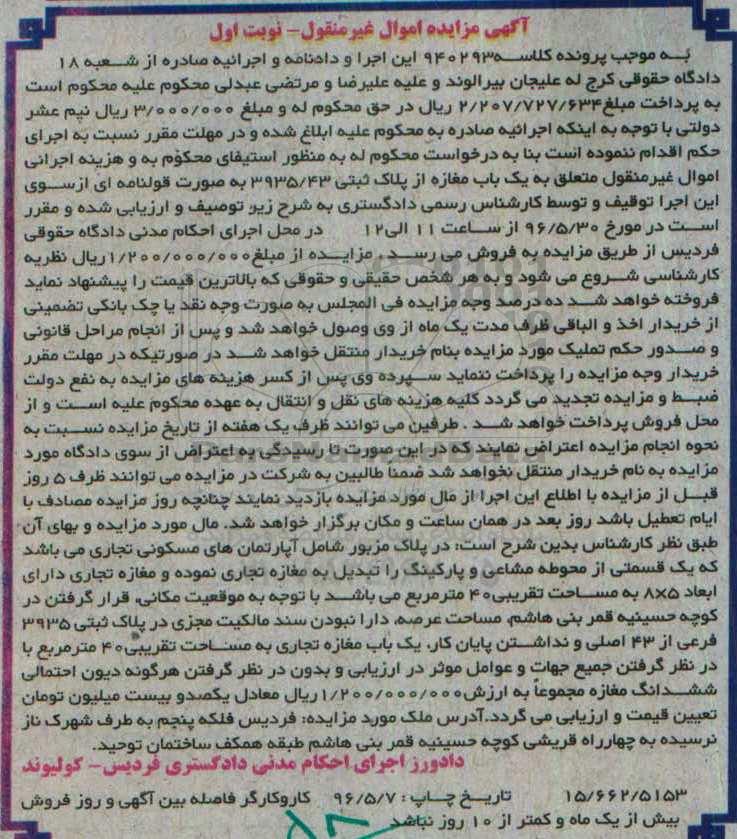 آگهی مزایده اموال غیرمنقول- نوبت اول
به موجب پرونده کلاسه ۹۴۰۲۹۳ این اجرا و دادنامه و اجرائیه صادره از شعبه ۱۸
دادگاه حقوقی کرج له علیجان بیرالوند و علیه علیرضا و مرتضی عبدلی محکوم علیه محکوم است
به پرداخت مبلغ ۲/۲۰۷/۷۲۷/۶۳۴ ریال در حق محکوم له و مبلغ ۳/۰۰۰/۰۰۰ ریال نیم عشر
دولتی با توجه به اینکه اجرائیه صادره به محکوم علیه ابلاغ شده و در مهلت مقرر نسبت به اجرای
حکم اقدام ننموده است بنا به درخواست محکوم له به منظور استیفای محکوم به و هزینه اجرائی
اموال غیرمنقول متعلق به یک باب مغازه از پلاک ثبتی ۳۹۳۵/۴۳ به صورت قولنامه ای از سوی
این اجرا توقیف و توسط کارشناس رسمی دادگستری به شرح زیر توصیف و ارزیابی شده و مقرر
است در مورخ ۹۶/۵/۳۰ از ساعت ۱۱ الی ۱۲ در محل اجرای احکام مدنی دادگاه حقوقی
فردیس از طریق مزایده به فروش می رسد. مزایده از مبلغ ۱/۲۰۰/۰۰۰/۰۰۰ ریال نظریه
کارشناسی شروع می شود و به هر شخص حقیقی و حقوقی که بالاترین قیمت را پیشنهاد نماید
فروخته خواهد شد ده درصد وجه مزایده فی المجلس به صورت وجه نقد یا چک بانکی تضمینی
از خریدار اخذ و الباقی ظرف مدت یک ماه از وی وصول خواهد شد و پس از انجام مراحل قانونی
و صدور حکم تملیک مورد مزایده بنام خریدار منتقل خواهد شد در صورتیکه در مهلت مقرر
خریدار وجه مزایده را پرداخت ننماید سپرده وی پس از کسر هزینه های مزایده به نفع دولت
ضبط و مزایده تجدید می گردد کلیه هزینه های نقل و انتقال به عهده محکوم علیه است و از
محل فروش پرداخت خواهد شد . طرفین می توانند ظرف یک هفته از تاریخ مزایده نسبت به
نحوه انجام مزایده اعتراض نمایند که در این صورت تا رسیدگی به اعتراض از سوی دادگاه مورد
مزایده به نام خریدار منتقل نخواهد شد ضمناً طالبین به شرکت در مزایده می توانند ظرف ۵ روز
قبل از مزایده با اطلاع این اجرا از مال مورد مزایده بازدید نمایند چنانچه روز مزایده مصادف با
ایام تعطیل باشد روز بعد در همان ساعت و مکان برگزار خواهد شد. مال مورد مزایده و بهای آن
طبق نظر کارشناس بدین شرح است: در پلاک مزبور شامل آپارتمان های مسکونی تجاری می باشد
که یک قسمتی از محوطه مشاعی و پارکینگ را تبدیل به مغازه تجاری نموده و مغازه تجاری دارای
ابعاد ۸x۵ به مساحت تقریبی ۴۰ مترمربع می باشد با توجه به موقعیت مکانی، قرار گرفتن در
کوچه حسینیه قمر بنی هاشم، مساحت عرصه، دارا نبودن سند مالکیت مجزی در پلاک ثبتی ۳۹۳۵
فرعی از ۴۳ اصلی و نداشتن پایان کار، یک باب مغازه تجاری به مساحت تقریبی ۴۰ مترمربع با
در نظر گرفتن جمیع جهات و عوامل موثر در ارزیابی و بدون در نظر گرفتن هرگونه دیون احتمالی
ششدانگ مغازه مجموعاً به ارزش ۱/۲۰۰/۰۰۰/۰۰۰ ریال معادل یکصدو بیست میلیون تومان
تعیین قیمت و ارزیابی می گردد.آدرس ملک مورد مزایده: فردیس فلکه پنجم به طرف شهرک ناز
نرسیده به چهارراه قریشی کوچه حسینیه قمر بنی هاشم طبقه همکف ساختمان توحید.
دادورز اجرای احکام مدنی دادگستری فردیس- کولیوند
۱۵/۶۶۲/۵۱۵۳ تاریخ چاپ : ۹۶/۵/۷ کاروکارگر فاصله بین آگهی و روز فروش
بیش از یک ماه و کمتر از ۱۰ روز نباشد